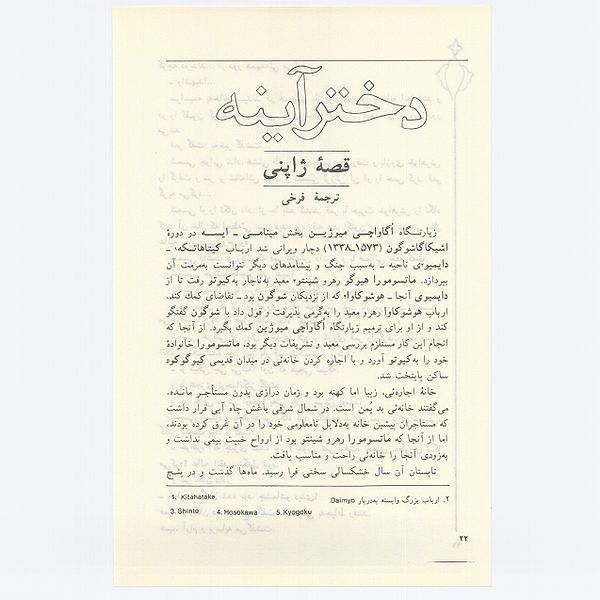 دختر آینه
قصهٔ ژاپنی
ترجمهٔ فرخی
زیارتگاه اُگاواچی میوژین بخش میتامی ـ ایسه در دورهٔ
اشیکاگاشوگون (۱۵۷۳ـ۱۳۳۸) دچار ویرانی شد ارباب کیتاهاتکه۱ ـ
دایمیو۲ی ناحیه ـ به‌سبب جنگ و پیشامدهای دیگر نتوانست به‌مرمت آن
بپردازد. ماتسومورا هیوگو رهرو شینتو۳ معبد به‌ناچار به‌کیوتو رفت تا از
دایمیوی آنجا ـ هوشوکاوا۴ که از نزدیکان شوگون بود ـ تقاضای کمك کند.
ارباب هوشوکاوا رهرو معبد را به‌گرمی پذیرفت و قول داد با شوگون گفتگو
کند و از او برای ترمیم زیارتگاه اُگاواچی میوژین کمك بگیرد. از آنجا که
انجام این کار مستلزم بررسی معبد و تشریفات دیگر بود، ماتسومورا خانوادهٔ
خود را به‌کیوتو آورد و با اجاره کردن خانه‌ئی در میدان قدیمی کیوگوکو۵
ساکن پایتخت شد.
خانهٔ اجاره‌ئی، زیبا اما کهنه بود و زمان درازی بدون مستأجر مانده،
می‌گفتند خانه‌ئی بد یُمن است. در شمال شرقی باغش چاه آبی قرار داشت
که مستاجران پیشین خانه به‌دلایل نامعلومی خود را در آن غرق کرده بودند،
اما از آنجا که ماتسومورا رهرو شینتو بود از ارواح خبیث بیمی نداشت و
به‌زودی آنجا را خانه‌ئی راحت و مناسب یافت.
تابستان آن سال خشکسالی سختی فرا رسید. ماه‌ها گذشت و در پنج
1. Kitahatake. ۲. ارباب بزرگ وابسته به‌دربار Daimyo.
3. Shinto 4. Hosokawa 5. Kyogoku
۲۲